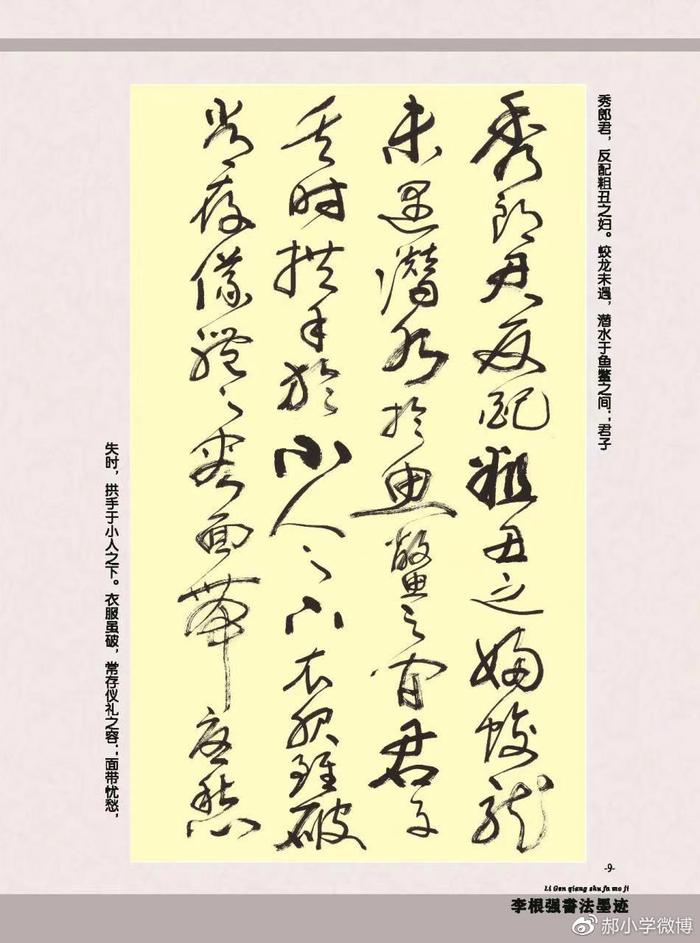 秀郎君，反配粗丑之妇。蛟龙未遇，潜水于鱼鳖之间；君子
秀郎君反配粗丑之婦蛟龍
未遇潛水於魚鱉之间君子
失时拱手於小人之下衣服雖破
常存儀禮之容面帶憂愁
失时，拱手于小人之下。衣服虽破，常存仪礼之容；面带忧愁，
-9-
Li Gen qiang shu fa mo ji
李根强書法墨迹
郝小学微博